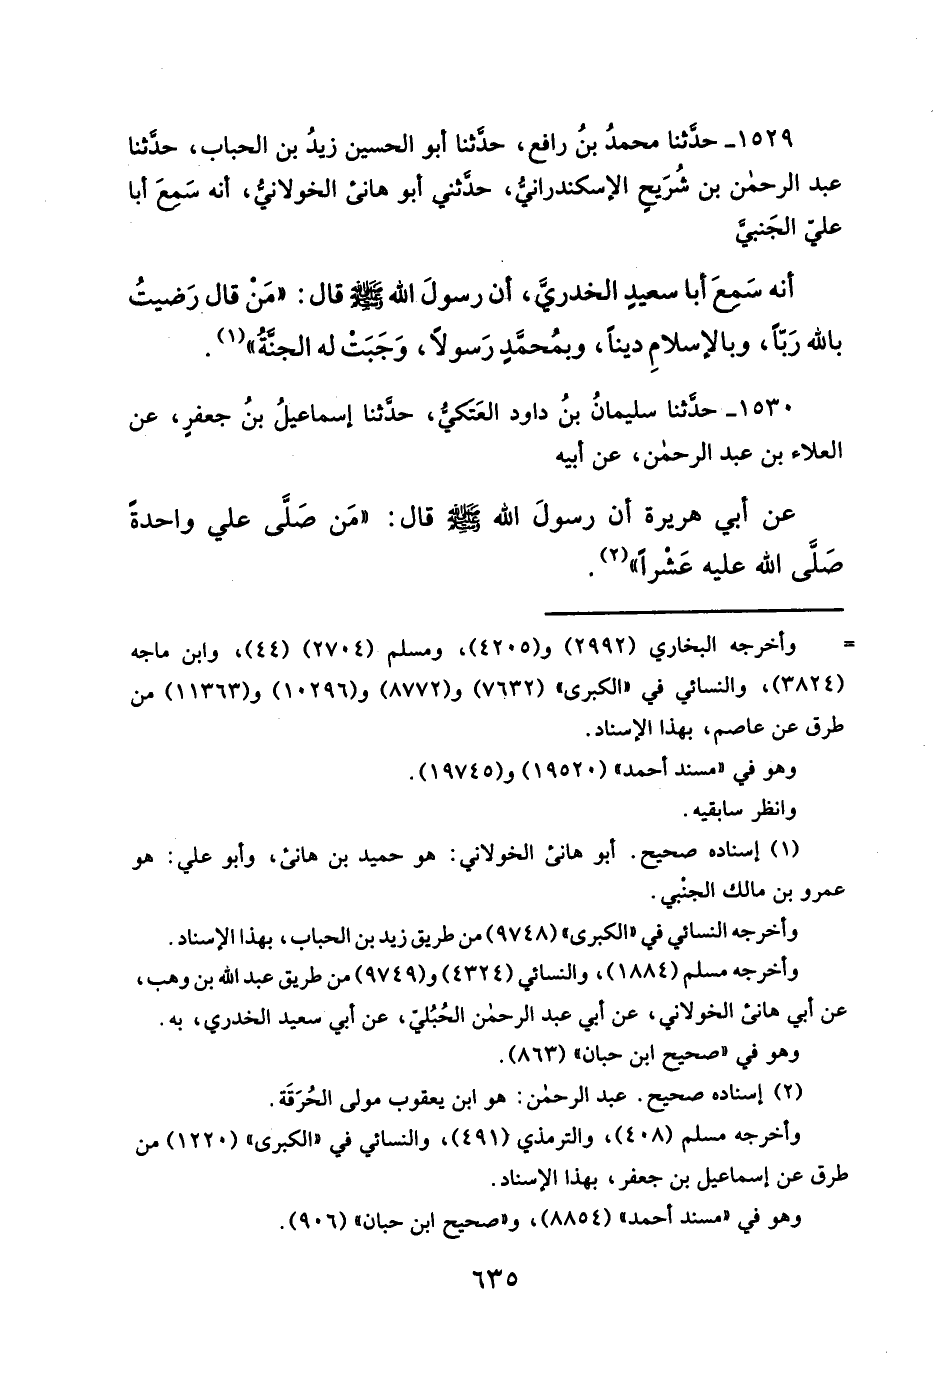 ١٥٢٩ـ حدَّثنا محمدُ بنُ رافع، حدَّثنا أبو الحسين زيدُ بن الحباب، حدَّثنا
عبد الرحمٰن بن شُرَيحٍ الإسكندرانيُّ، حدَّثني أبو هانئ الخولانيُّ، أنه سَمِعَ أبا
عليّ الجَنبيَّ
أنه سَمِعَ أبا سعيدٍ الخدريَّ، أن رسولَ الله ﷺ قال: «مَنْ قال رَضيتُ
بالله رَبّاً، وبالإسلامِ ديناً، وبمُحمَّدٍ رَسولاً، وَجَبَتْ له الجنَّةُ»(١).
١٥٣٠ـ حدَّثنا سليمانُ بنُ داود العَتَكيُّ، حدَّثنا إسماعيلُ بنُ جعفرٍ، عن
العلاء بن عبد الرحمٰن، عن أبيه
عن أبي هريرة أن رسولَ الله ﷺ قال: «مَن صَلَّى علي واحدةً
صَلَّى الله عليه عَشْراً»(٢).
= وأخرجه البخاري (٢٩٩٢) و(٤٢٠٥)، ومسلم (٢٧٠٤) (٤٤)، وابن ماجه
(٣٨٢٤)، والنسائي في «الكبرى» (٧٦٣٢) و(٨٧٧٢) و(١٠٢٩٦) و(١١٣٦٣) من
طرق عن عاصم، بهذا الإسناد.
وهو في «مسند أحمد» (١٩٥٢٠) و(١٩٧٤٥).
وانظر سابقيه.
(١) إسناده صحيح. أبو هانئ الخولاني: هو حميد بن هانئ، وأبو علي: هو
عمرو بن مالك الجنْبي.
وأخرجه النسائي في «الكبرى» (٩٧٤٨) من طريق زيد بن الحباب، بهذا الإسناد.
وأخرجه مسلم (١٨٨٤)، والنسائي (٤٣٢٤) و(٩٧٤٩) من طريق عبد الله بن وهب،
عن أبي هانئ الخولاني، عن أبي عبد الرحمٰن الحُبُليّ، عن أبي سعيد الخدري، به.
وهو في «صحيح ابن حبان» (٨٦٣).
(٢) إسناده صحيح. عبد الرحمٰن: هو ابن يعقوب مولى الحُرَقَة.
وأخرجه مسلم (٤٠٨)، والترمذي (٤٩١)، والنسائي في «الكبرى» (١٢٢٠) من
طرق عن إسماعيل بن جعفر، بهذا الإسناد.
وهو في «مسند أحمد» (٨٨٥٤)، و«صحيح ابن حبان» (٩٠٦).
٦٣٥